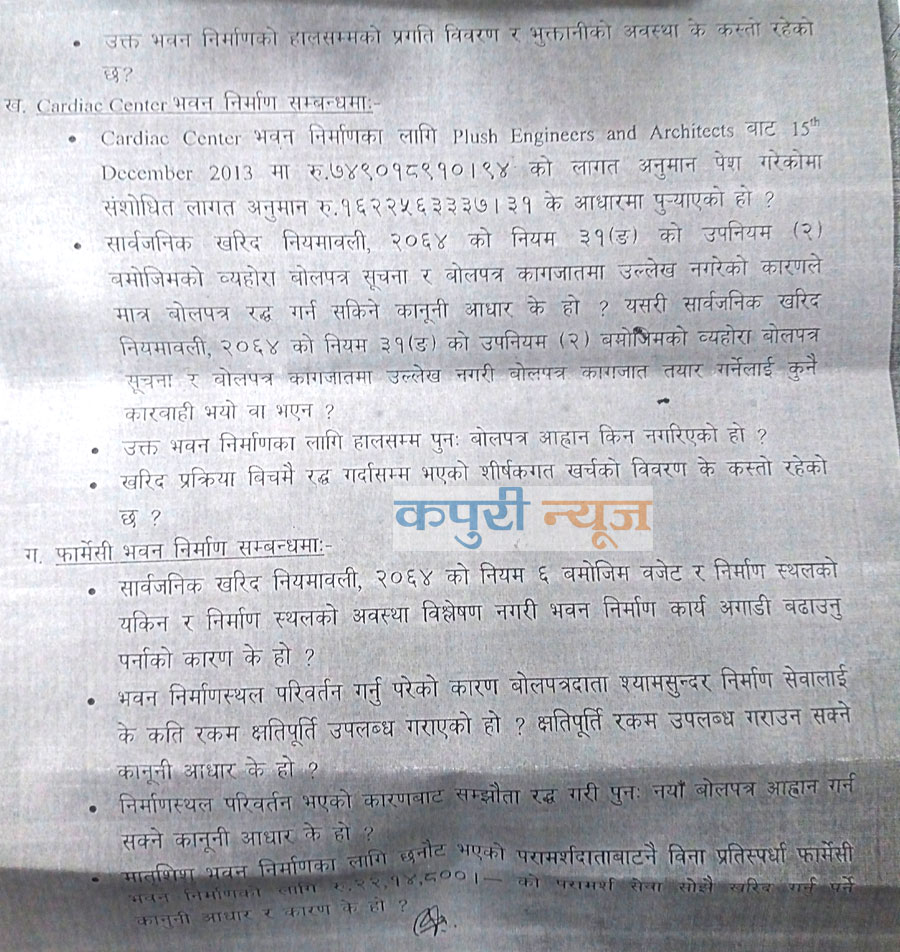 • उक्त भवन निर्माणको हालसम्मको प्रगति विवरण र भुक्तानीको अवस्था के कस्तो रहेको
छ?
ख. Cardiac Center भवन निर्माण सम्बन्धमाः-
• Cardiac Center भवन निर्माणका लागि Plush Engineers and Architects बाट 15th
December 2013 मा रु.७४९०१८९१०।९४ को लागत अनुमान पेश गरेकोमा
संशोधित लागत अनुमान रु.१६२२५६३३३७।३१ के आधारमा पुर्‍याएको हो ?
• सार्वजनिक खरिद नियमावली, २०६४ को नियम ३१(ङ) को उपनियम (२)
बमोजिमको व्यहोरा बोलपत्र सूचना र बोलपत्र कागजातमा उल्लेख नगरेको कारणले
मात्र बोलपत्र रद्ध गर्न सकिने कानूनी आधार के हो ? यसरी सार्वजनिक खरिद
नियमावली, २०६४ को नियम ३१(ङ) को उपनियम (२) बमोजिमको व्यहोरा बोलपत्र
सूचना र बोलपत्र कागजातमा उल्लेख नगरी बोलपत्र कागजात तयार गर्नेलाई कुनै
कारवाही भयो वा भएन ?
• उक्त भवन निर्माणका लागि हालसम्म पुनः बोलपत्र आह्वान किन नगरिएको हो ?
• खरिद प्रक्रिया बिचमै रद्ध गर्दासम्म भएको शीर्षकगत खर्चको विवरण के कस्तो रहेको
छ ?
कपुरी न्यूज
ग. फार्मेसी भवन निर्माण सम्बन्धमाः-
• सार्वजनिक खरिद नियमावली, २०६४ को नियम ६ बमोजिम वजेट र निर्माण स्थलको
यकिन र निर्माण स्थलको अवस्था विश्लेषण नगरी भवन निर्माण कार्य अगाडी बढाउनु
पर्नाको कारण के हो ?
• भवन निर्माणस्थल परिवर्तन गर्नु परेको कारण बोलपत्रदाता श्यामसुन्दर निर्माण सेवालाई
के कति रकम क्षतिपूर्ति उपलब्ध गराएको हो ? क्षतिपूर्ति रकम उपलब्ध गराउन सक्ने
कानूनी आधार के हो ?
• निर्माणस्थल परिवर्तन भएको कारणबाट सम्झौता रद्ध गरी पुनः नयाँ बोलपत्र आह्वान गर्न
सक्ने कानूनी आधार के हो ?
• मातृशिशु भवन निर्माणका लागि छनौट भएको परामर्शदाताबाटनै विना प्रतिस्पर्धा फार्मेसी
भवन निर्माणका लागि को परामर्श सेवा सोझै खरिद गर्न पर्ने
कानूनी आधार र कारण के हो ?